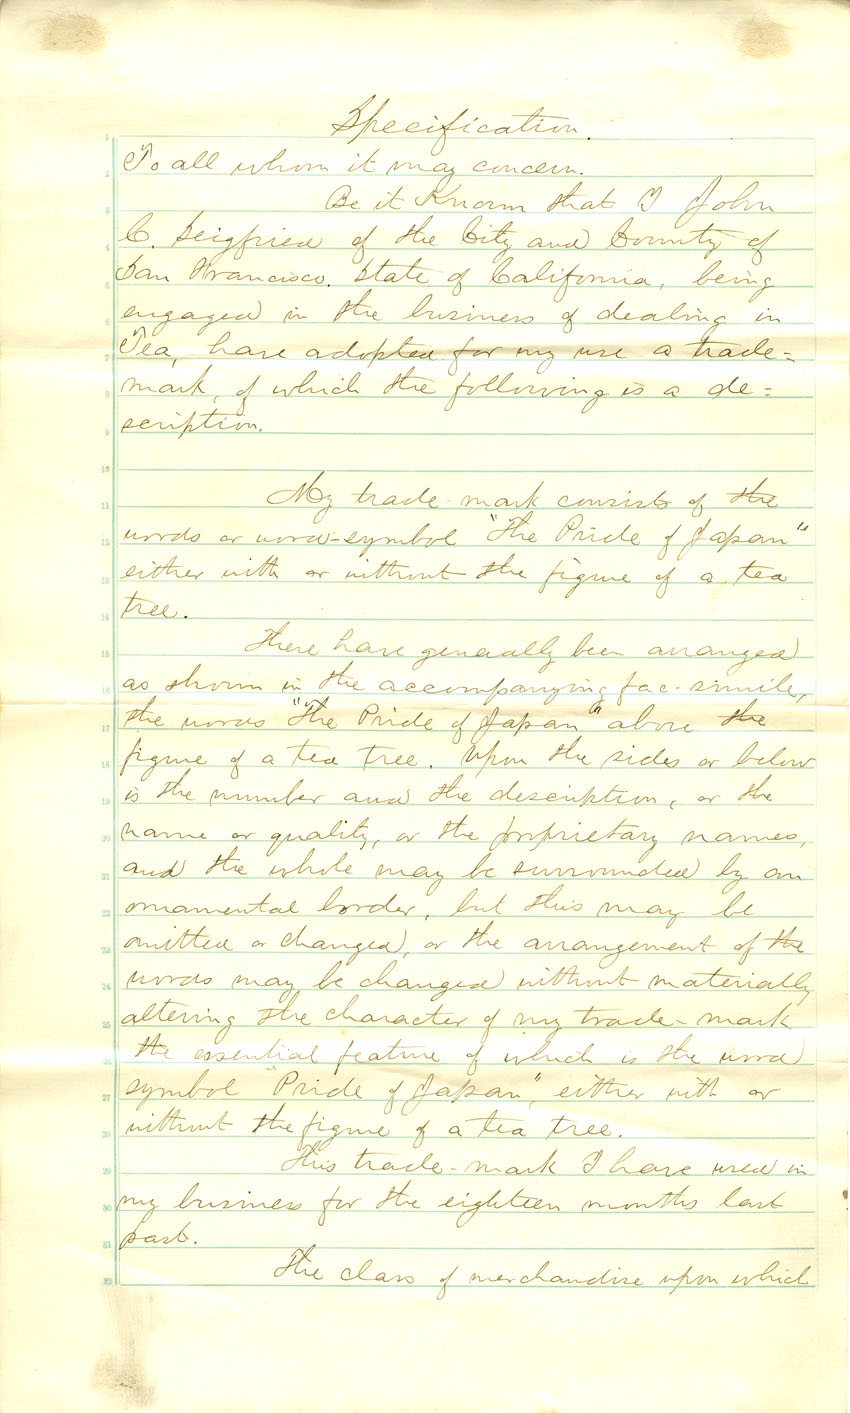 Specification.
To all whom it may concern.
Be it Known that I John
C. Seigfried of the City and County of
San Francisco. State of California, being
engaged in the business of dealing in
Tea, have adopted for my use a trade=
mark, of which the following is a de=
scription.
My trade-mark consists of the
words or word-symbol "The Pride of Japan"
either with or without the figure of a tea
tree.
These have generally been arranged
as shown in the accompanying fac-simile,
the words "The Pride of Japan" above the
figure of a tea tree. Upon the sides or below
is the number and the description, or the
name or quality, or the proprietary names,
and the whole may be surrounded by an
ornamental border, but this may be
omitted or changed, or the arrangement of the
words may be changed without materially
altering the character of my trade-mark
the essential feature of which is the word
symbol "Pride of Japan", either with or
without the figure of a tea tree.
This trade-mark I have used in
my business for the eighteen months last
past.
The class of merchandise upon which
1
2
3
4
5
6
7
8
9
10
11
12
13
14
15
16
17
18
19
20
21
22
23
24
25
26
27
28
29
30
31
32